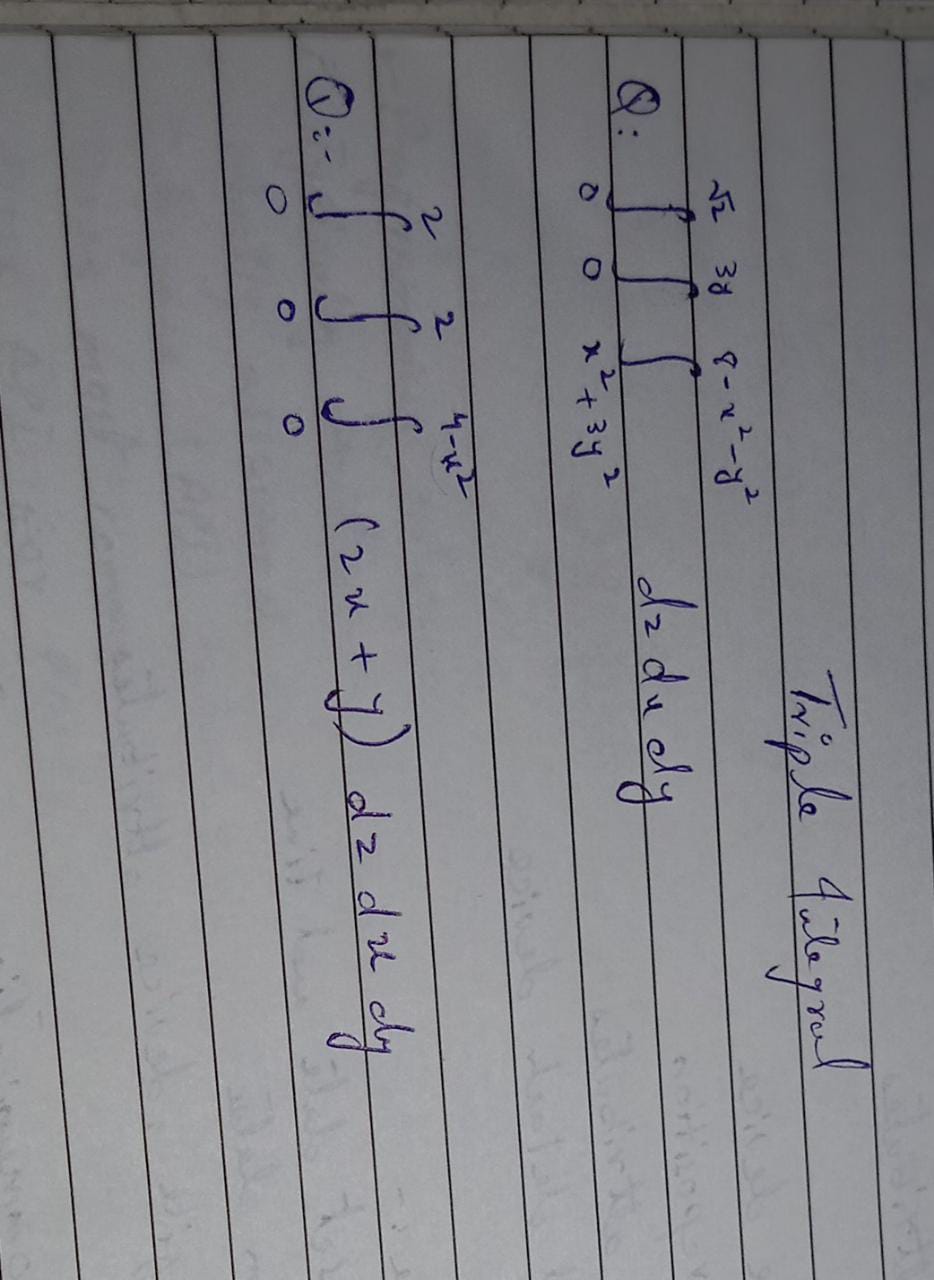 Triple Integral
Q: ∫₀^√2 ∫₀^3y ∫_{x²+3y²}^{8-x²-y²} dz dx dy
Q:- ∫₀² ∫₀² ∫₀^{4-x²} (2x+y) dz dx dy